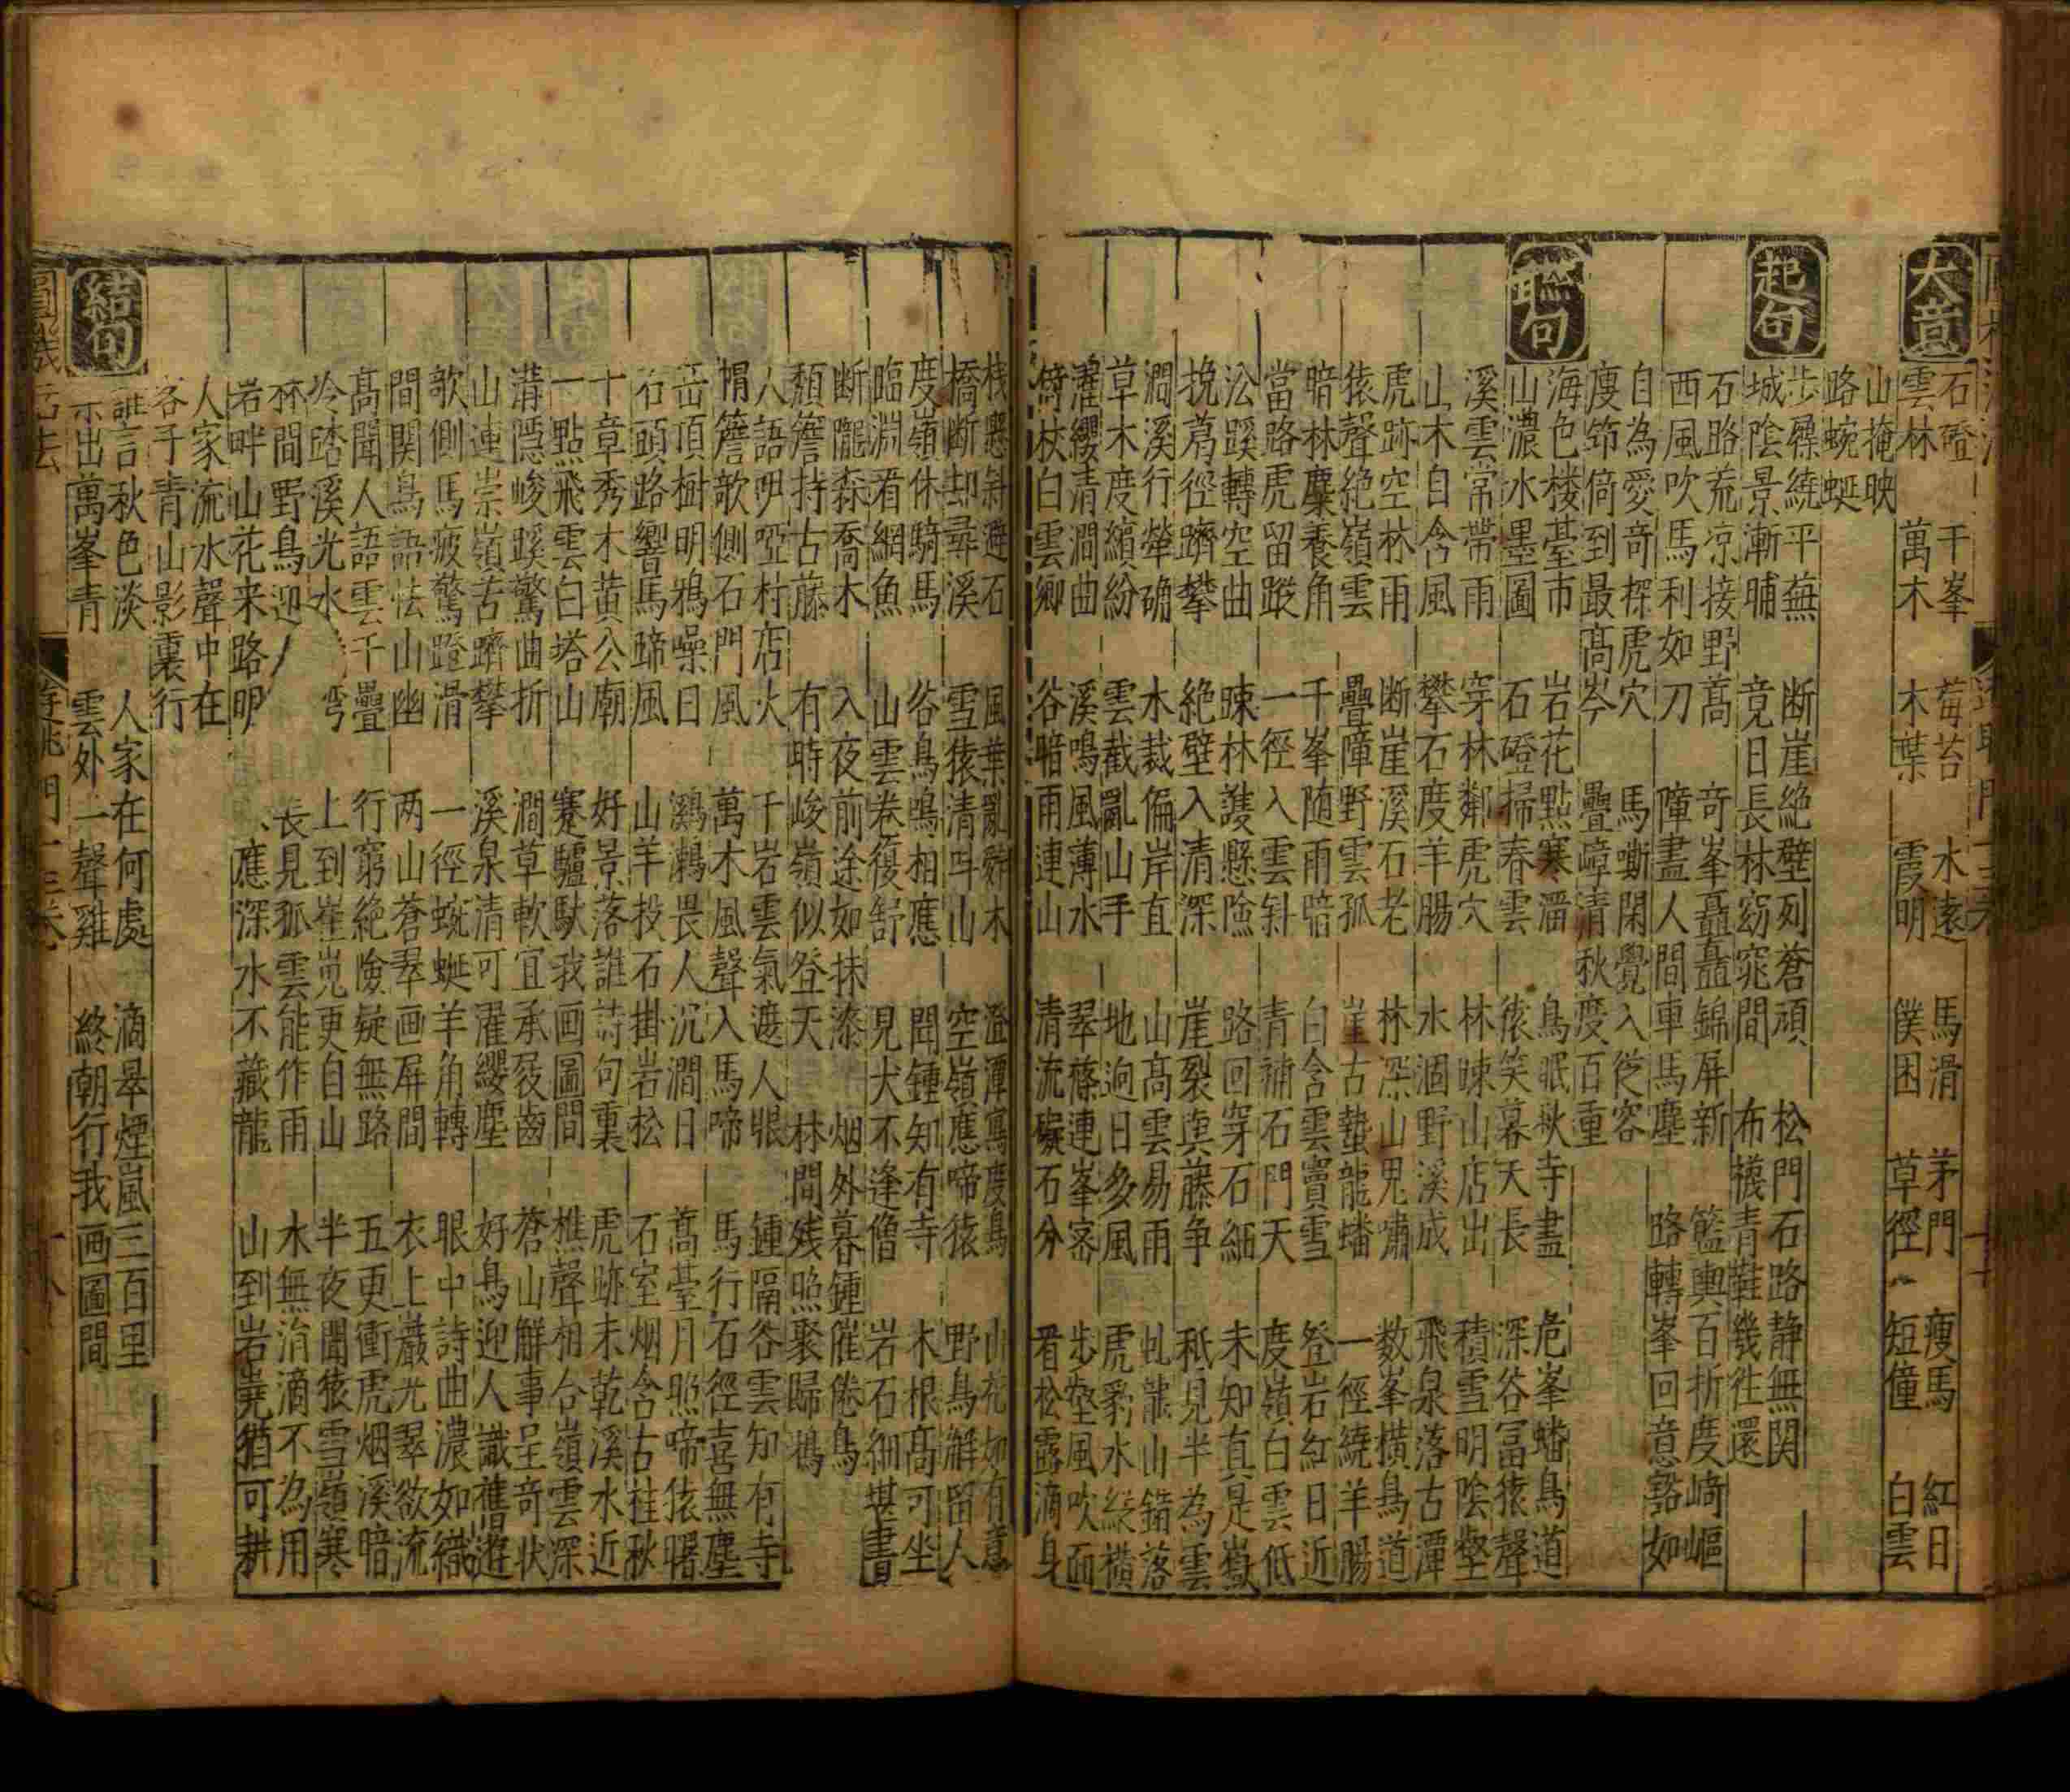 大意
石磴　千峯　莓苔　水遠　馬滑　茅門　瘦馬　紅日
雲林　萬木　木葉　霞明　僕困　草徑　短僮　白雲
山掩映
路蜿蜒
起句
步屧繞平蕪　断崖絶壁列蒼頑　松門石路静無関
城陰景漸晡　竟日長林窈窕間　布襪青鞋幾徃還
石路荒凉接野蒿　奇峯矗矗錦屏新　籃輿百折度崎嶇
西風吹馬利如刀　障盡人間車馬塵　路轉峯回意豁如
自為愛奇探虎穴　馬嘶閑覺入從容
廋筇倚到最髙岑　疊嶂清秋度百重
聮句
海色楼臺市　岩花點寒溜　鳥眠秋寺畫　危峯蟠鳥道
山濃水墨圖　石磴掃春雲　猿笑暮天長　深谷冨猿聲
溪雲常帶雨　穿林鄰虎穴　林踈山店出　積雪明陰壑
山木自含風　攀石度羊腸　水涸野溪成　飛泉落古潭
虎跡空林雨　断崖溪石老　林深山鬼嘯　数峯横鳥道
猿聲絶嶺雲　疊障野雲孤　崖古蟄龍蟠　一徑繞羊腸
暗林麋養角　千峯随雨暗　白含雲竇雪　登岩紅日近
當路虎留蹤　一徑入雲斜　青補石門天　度嶺白雲低
㳂蹊轉空曲　踈林護懸險　路回穿石細　未知直是嶽
挽葛徑躋攀　絶壁入清深　崖裂與藤争　秖見半為雲
澗溪行犖确　水裁偏岸直　山髙雲易雨　虬龍山錯落
草木度繽紛　雲截亂山手　地逈日多風　虎豹水縱横
濯纓清澗曲　溪鳴風薄水　翠落連峯宻　步壑風吹面
倚杖白雲鄉　谷暗雨連山　清流礙石分　看松露滴身
栈懸斜避石　風葉亂辤木　澄潭寫度鳥　山花如有意
橋断却尋溪　雪猿清呌山　空嶺應啼猿　野鳥解留人
度嶺休騎馬　谷鳥鳴相應　聞鍾知有寺　木根髙可坐
臨淵看網魚　山雲卷復舒　見犬不逢僧　岩石細堪書
断隴森喬木　入夜前途如抹漆　烟外暮鍾催倦鳥
頽簷持古藤　有時峻嶺似登天　林間残照聚歸鴉
人語吚啞村店火　千岩雲氣遮人眼　鍾隔谷雲知有寺
帽簷欹側石門風　萬木風聲入馬啼　馬行石徑喜無塵
岳頂樹明鴉噪日　鸂鶒畏人沉澗日　髙臺月照啼猿曙
石頭路響馬蹄風　山羊投石掛岩松　石室烟含古桂秋
十章秀木黄公廟　好景落誰詩句裏　虎跡未乾溪水近
一點飛雲白塔山　蹇驢馱我画圖間　樵聲相合嶺雲深
溝隠峻蹊驚曲折　澗草軟宜承屐齒　蒼山解事呈奇状
山連崇嶺苦躋攀　溪泉清可濯纓塵　好鳥迎人識舊遊
欹側馬疲驚蹬滑　一徑蜿蜒羊角轉　眼中詩曲濃如織
間関鳥語怯山幽　两山蒼翠画屏間　衣上巖光翠欲流
髙聞人語雲千疊　行窮絶險疑無路　五更衝虎烟溪暗
冷踏溪光水　彎　上到崔嵬更自山　半夜聞猿雪嶺寒
林間野鳥迎　長見孤雲能作雨　水無消滴不為用
岩畔山花来路明　應深水不藏龍　山到岩嶤猶可耕
人家流水聲中在
客子青山影裏行
結句
誰言秋色淡　人家在何處　滴翠煙嵐三百里
示出萬峯青　雲外一聲雞　終朝行我画圖間